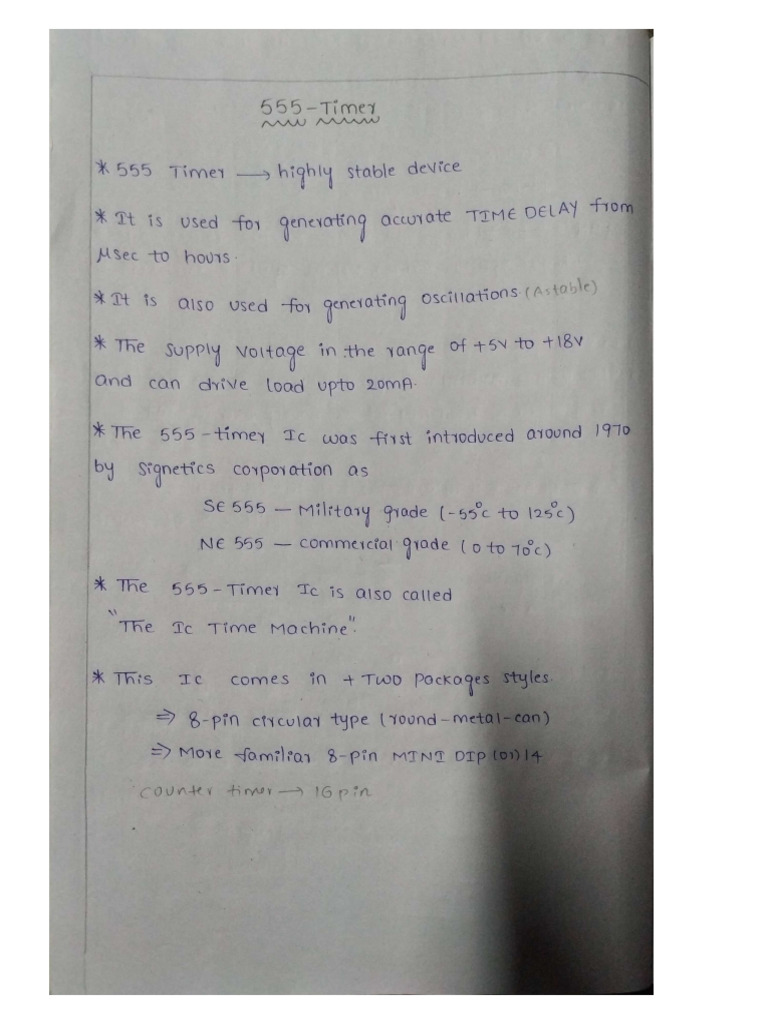 555-Timer
* 555 Timer → highly stable device
* It is used for generating accurate TIME DELAY from
μsec to hours.
* It is also used for generating oscillations (Astable)
* The supply voltage in the range of +5V to +18V
and can drive load upto 20mA.
* The 555-timer Ic was first introduced around 1970
by Signetics corporation as
SE 555 — Military grade (-55°c to 125°c)
NE 555 — commercial grade (0 to 70°c)
* The 555-Timer Ic is also called
"The Ic Time Machine".
* This Ic comes in + Two packages styles.
⇒ 8-pin circular type (round-metal-can)
⇒ More familiar 8-pin MINI DIP (or) 14
counter timer → 16 pin